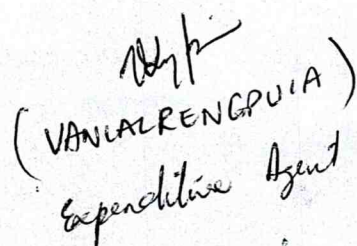 (VANLALRENGPUIA)
Expenditure Agent